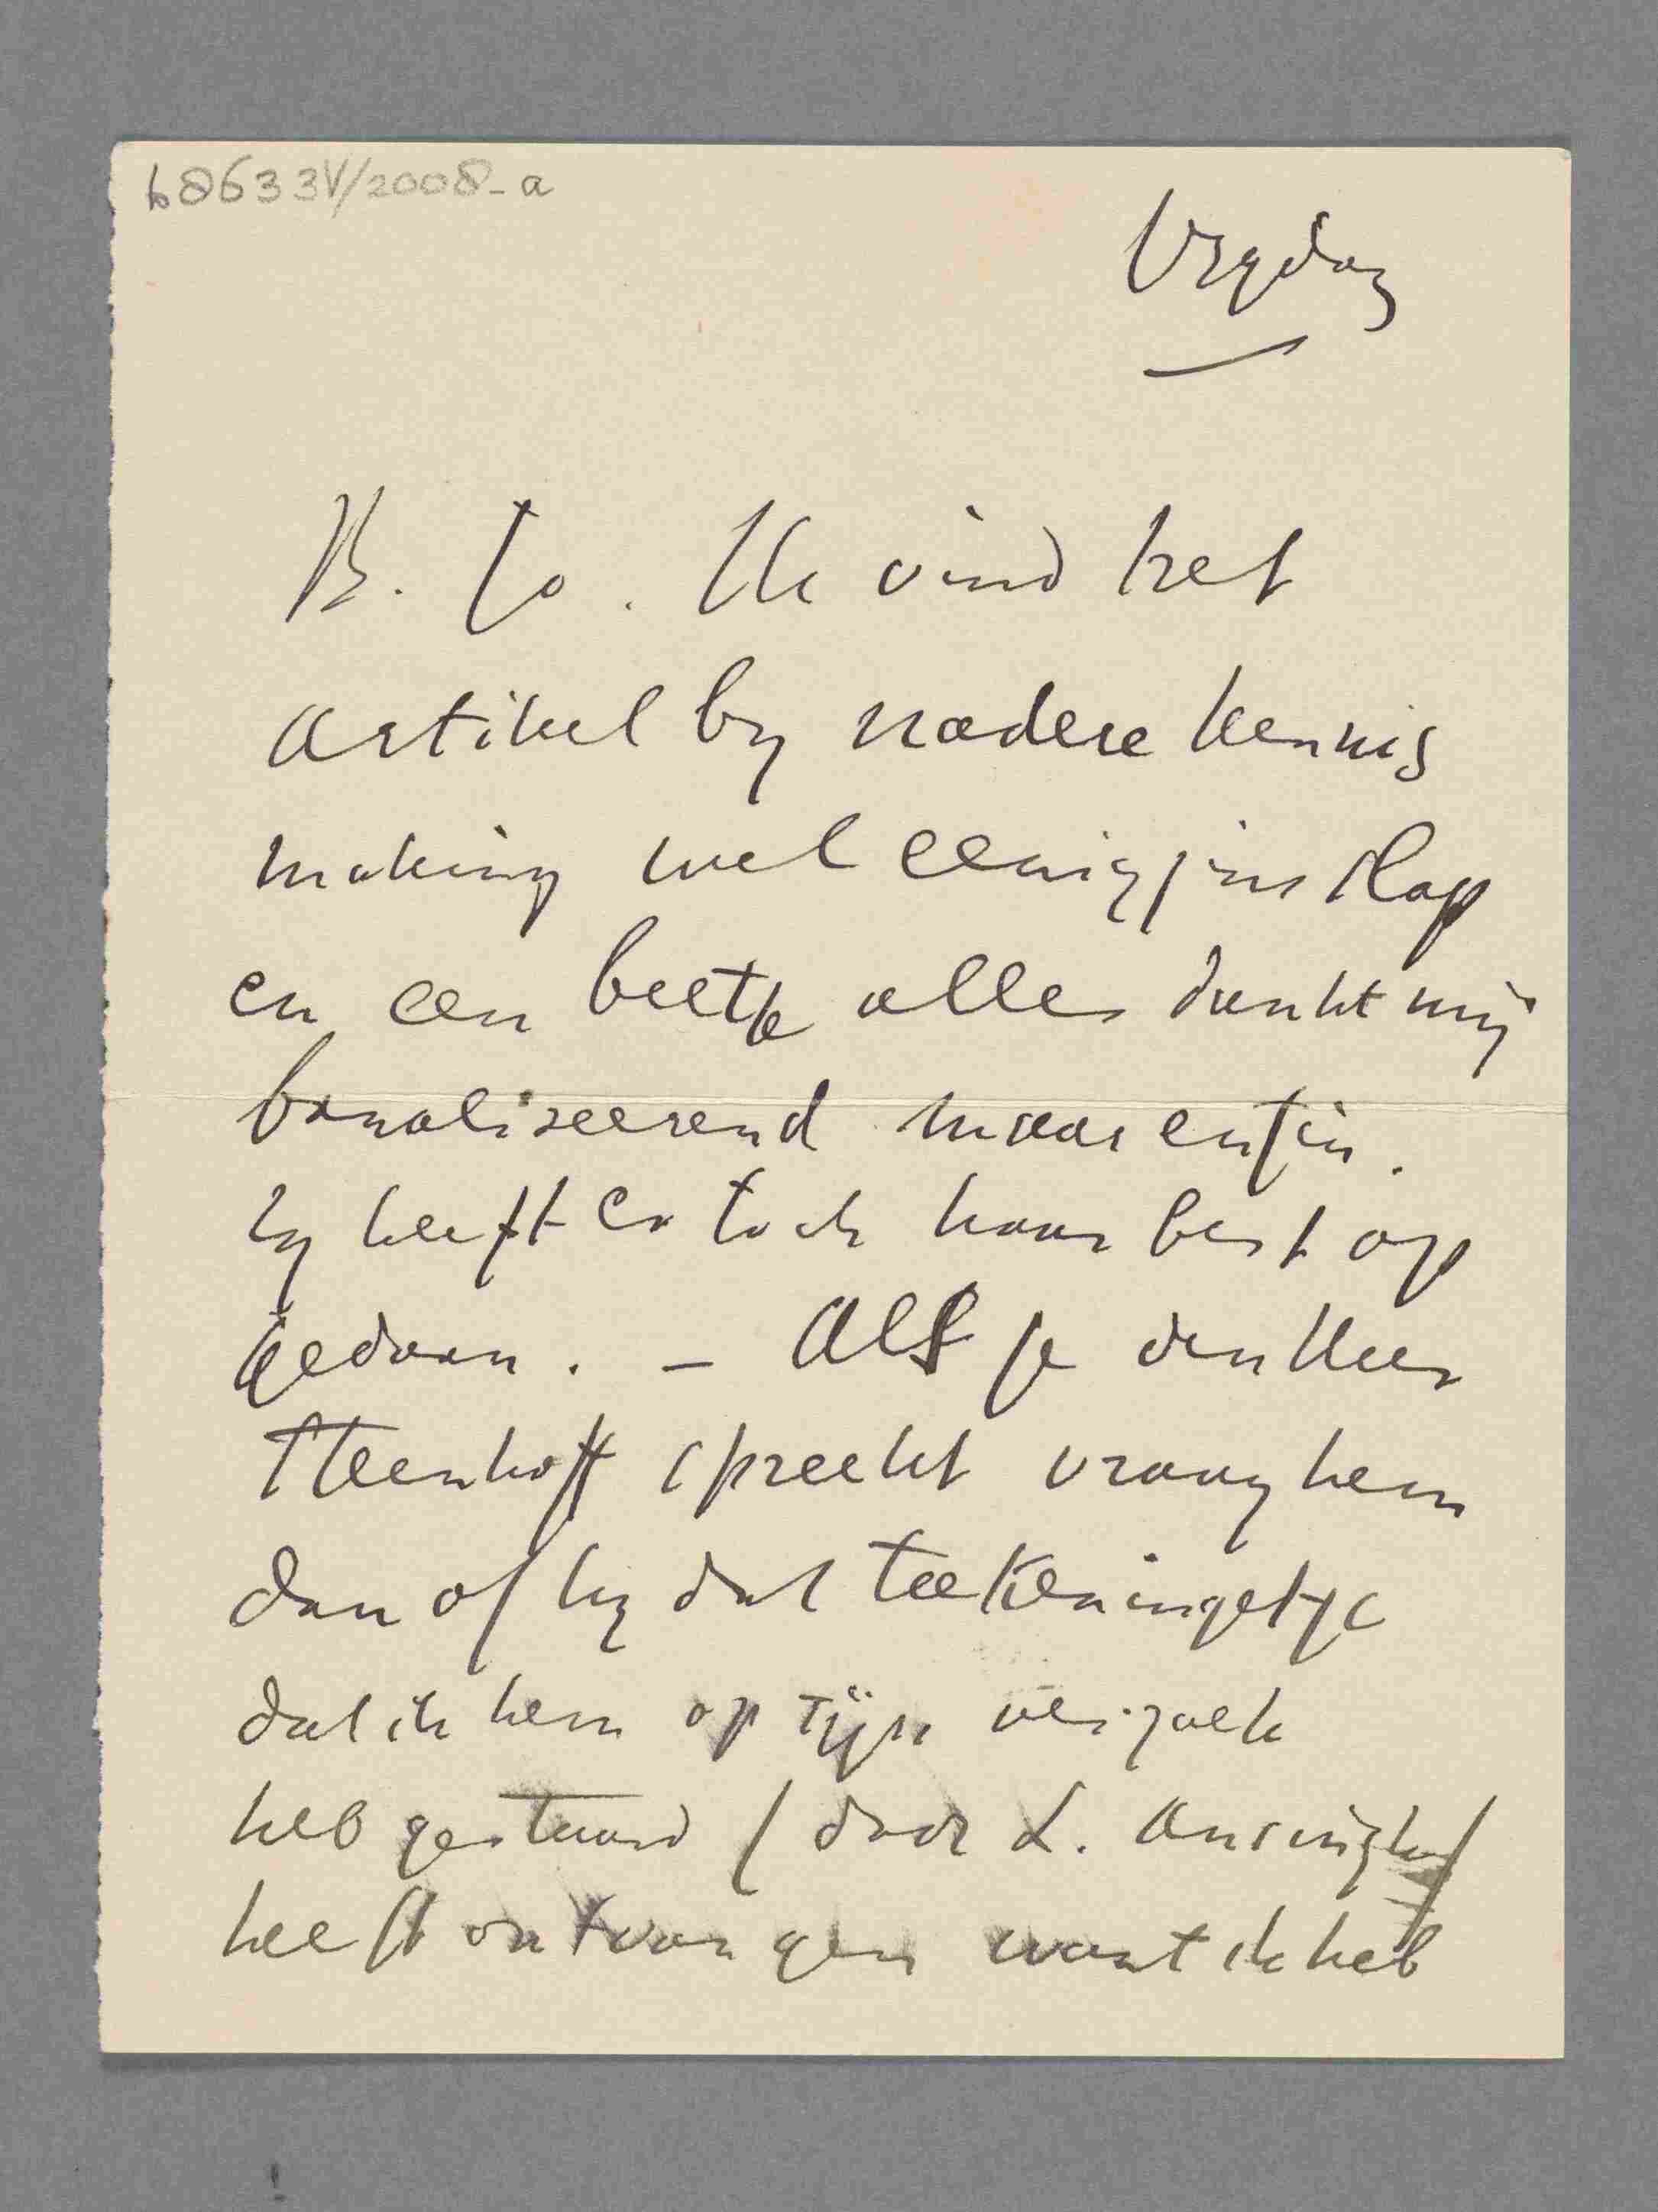 b8633V/2008-a
Vrydag
B. Jo. Ik vind het
artikel by nadere kennis
making wel eenigzins slap
en een beetje alles dunkt mij
banaliseerend maar enfin.
Zy heeft er toch haar best op
gedaan. – Als je den Heer
Steenhoff spreekt vraag hem
dan of hy dat teekeningetje
dat ik hem op zijn verzoek
heb gestuurd (door L. Ansingh)
heeft ontvangen want ik heb